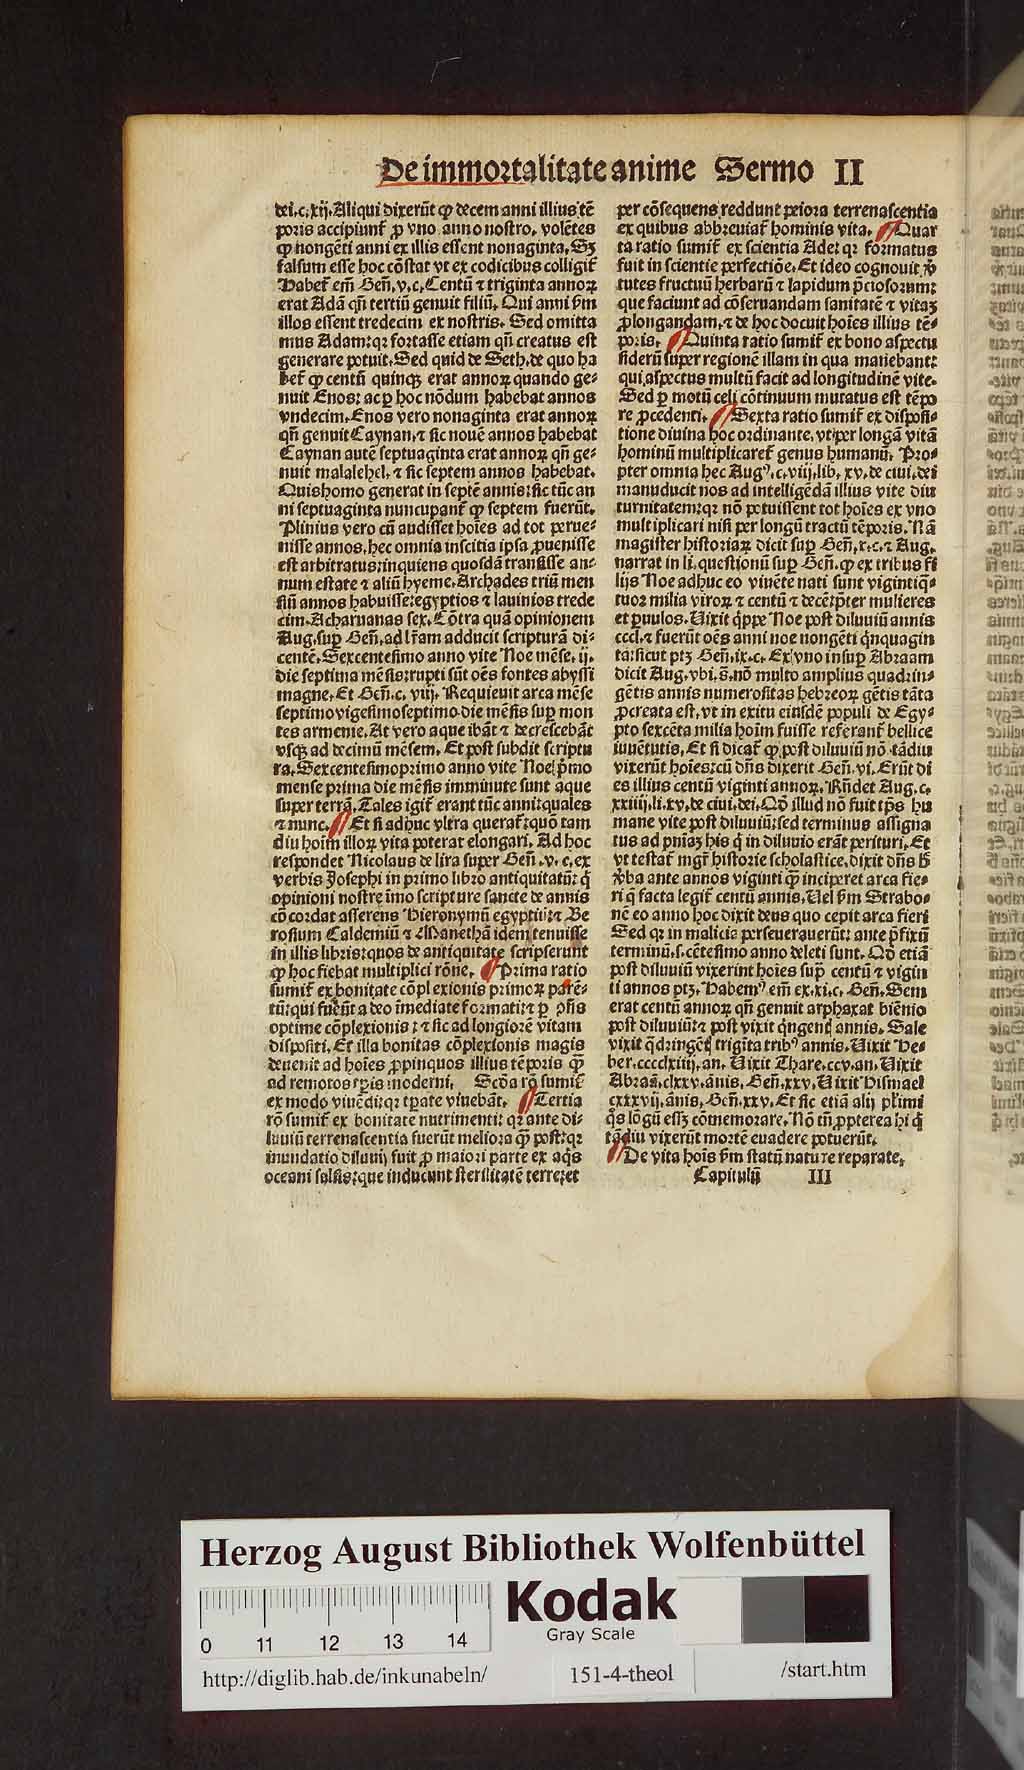 De immortalitate anime Sermo II
dei.c.xij. Aliqui dixerūt ꝙ decem anni illius tē
poris accipiunt̄ ꝓ vno anno nostro, volētes
ꝙ nongēti anni ex illis essent nonaginta. Sꝫ
falsum esse hoc cōstat vt ex codicibus colligit̄
Habet̄ em̄ Geñ.v.c. Centū ⁊ triginta annoꝝ
erat Adā qñ tertiū genuit filiū. Qui anni ẜm
illos essent tredecim ex nostris. Sed omitta
mus Adam: qꝛ fortasse etiam qñ creatus est
generare potuit. Sed quid de Seth, de quo ha
bet̄ ꝙ centū quinqꝫ erat annoꝝ quando ge⸗
nuit Enos: ac ꝑ hoc nōdum habebat annos
vndecim. Enos vero nonaginta erat annoꝝ
qñ genuit Caynan, ⁊ sic nouē annos habebat
Caynan autē septuaginta erat annoꝝ qñ ge⸗
nuit malalehel, ⁊ sic septem annos habebat.
Quis homo generat in septē annis: sic tūc an
ni septuaginta nuncupant̄ ꝙ septem fuerūt.
Plinius vero cū audisset hoīes ad tot perue⸗
nisse annos, hec omnia inscitia ipsa ꝓuenisse
est arbitratus: inquiens quosdā transisse an⸗
num estate ⁊ aliū hyeme. Archades triū men
siū annos habuisse: egyptios ⁊ lauinios trede
cim. Acharnanas sex. Cōtra quā opinionem
Aug. suꝑ Geñ. ad lr̄am adducit scripturā di⸗
centē. Sexcentesimo anno vite Noe mēse. ij.
die septima mēsis: rupti sūt oēs fontes abyssi
magne. Et Geñ.c. viij. Requieuit arca mēse
septimo vigesimoseptimo die mēsis suꝑ mon
tes armenie. At vero aque ibāt ⁊ decrescebāt
vsqꝫ ad decimū mēsem. Et post subdit scriptu
ra. Sexcentesimoprimo anno vite Noe pͥmo
mense prima die mēsis imminute sunt aque
super terrā. Tales igit̄ erant tūc anni: quales
⁊ nunc. ¶ Et si adhuc vltra querat̄: quō tam
diu hoīm illoꝝ vita poterat elongari. Ad hoc
respondet Nicolaus de lira super Geñ.v.c. ex
verbis Josephi in primo libro antiquitatū: qͥ
opinioni nostre īmo scripture sancte de annis
cōcordat asserens Hieronymū egyptiū: ⁊ Be
rosium Caldemiū ⁊ Manethā idem tenuisse
in illis libris: quos de antiquitate scripserunt
ꝙ hoc fiebat multiplici rōne. ¶ Prima ratio
sumit̄ ex bonitate cōplexionis primoꝝ parē⸗
tū: qui fuerūt a deo īmediate formati: ⁊ ꝑ ꝯñs
optime cōplexionis: ⁊ sic ad longiorē vitam
dispositi. Et illa bonitas cōplexionis magis
deuenit ad hoīes ꝓpinquos illius tēporis ꝙ̄
ad remotos tꝑis moderni. Scd̄a rō sumit̄
ex modo viuēdi: qꝛ tꝑate viuebāt. ¶ Tertia
rō sumit̄ ex bonitate nutrimenti: qꝛ ante di⸗
luuiū terrenascentia fuerūt meliora ꝙ̄ post: qꝛ
inundatio diluuij fuit ꝓ maiori parte ex aqͥs
oceani salsis: que inducunt sterilitatē terre: et
per cōsequens reddunt peiora terrenascentia
ex quibus abbreuiat̄ hominis vita. ¶ Quar
ta ratio sumit̄ ex scientia Ade: qꝛ formatus
fuit in scientie perfectiōe. Et ideo cognouit v̓
tutes fructuū herbarū ⁊ lapidum p̄ciosorum:
que faciunt ad cōseruandam sanitatē ⁊ vitaꝫ
ꝓlongandam, ⁊ de hoc docuit hoīes illius tē⸗
poris. ¶ Quinta ratio sumit̄ ex bono aspectu
siderū super regionē illam in qua manebant:
qui aspectus multū facit ad longitudinē vite.
Sed ꝑ motū celi cōtinuum mutatus est tēpo
re p̄cedenti. ¶ Sexta ratio sumit̄ ex disposi⸗
tione diuina hoc ordinante, vt per longā vitā
hominū multiplicaret̄ genus humanū. Pro⸗
pter omnia hec Augꝰ.c.viij.lib.xv.de ciui.dei
manuducit nos ad intelligēdā illius vite diu
turnitatem: qꝛ nō potuissent tot hoīes ex vno
multiplicari nisi per longū tractū tēporis. Nā
magister historiaꝝ dicit suꝑ Geñ.x.c. ⁊ Aug.
narrat in li. questionū suꝑ Geñ. ꝙ ex tribus fi
lijs Noe adhuc eo viuēte nati sunt viginti qͣ⸗
tuor milia viroꝝ ⁊ centū ⁊ decē: p̄ter mulieres
et ꝑuulos. Uixit qͥppe Noe post diluuiū annis
cccl. ⁊ fuerūt oēs anni noe nongēti qͥnquagin
ta: sicut ptꝫ Geñ.ix.c. Ex vno insuꝑ Abraam
dicit Aug. vbi. s̄. nō multo amplius quadrin⸗
gētis annis numerositas hebreoꝝ gētis tāta
ꝓcreata est, vt in exitu eiusdē populi de Egy⸗
pto sexcēta milia hoīm fuisse referant̄ bellice
iuuētutis. Et si dicat̄ ꝙ post diluuiū nō tādiu
vixerūt hoīes: cū dñs dixerit Geñ.vi. Erūt di
es illius centū viginti annoꝝ. Rñdet Aug.c.
xxiiij.li.xv.de ciui.dei. Qō illud nō fuit tꝑs hu
mane vite post diluuiū: sed terminus assigna
tus ad pniaꝫ his qͥ in diluuio erāt perituri. Et
vt testat̄ mgr̄ historie scholastice, dixit dñs h̄
v̓ba ante annos viginti ꝙ̄ inciperet arca fie⸗
ri q̄ facta legit̄ centū annis. Uel ẜm Strabo⸗
nē eo anno hoc dixit deus quo cepit arca fieri
Sed qꝛ in malicie perseuerauerūt: ante p̄fixū
terminū.s.cētesimo anno deleti sunt. Qō etiā
post diluuiū vixerint hoīes supͣ centū ⁊ vigin
ti annos ptꝫ. Habemꝰ em̄ ex.xi.c. Geñ. Sem
erat centū annoꝝ qñ genuit arphaxat biēnio
post diluuiū: ⁊ post vixit qͥngentꝭ annis. Sale
vixit qͣdringētꝭ trigīta tribꝰ annis. Uixit He⸗
ber.cccclxiiij.an. Uixit Thare.ccv.an. Uixit
Abraā.clxxv.ānis. Geñ.xxv. Uixit Hismael
cxxxvij.ānis. Geñ.xxv. Et sic etiā alij pl̓imi
qͦs lōgū essꝫ cōmemorare. Nō tñ ꝓpterea hi qͥ
tādiu vixerūt mortē euadere potuerūt.
¶ De vita hoīs ẜm statū nature reparate.
Capitulū III
Herzog August Bibliothek Wolfenbüttel
0 11 12 13 14
Kodak
Gray Scale
http://diglib.hab.de/inkunabeln/ 151-4-theol /start.htm